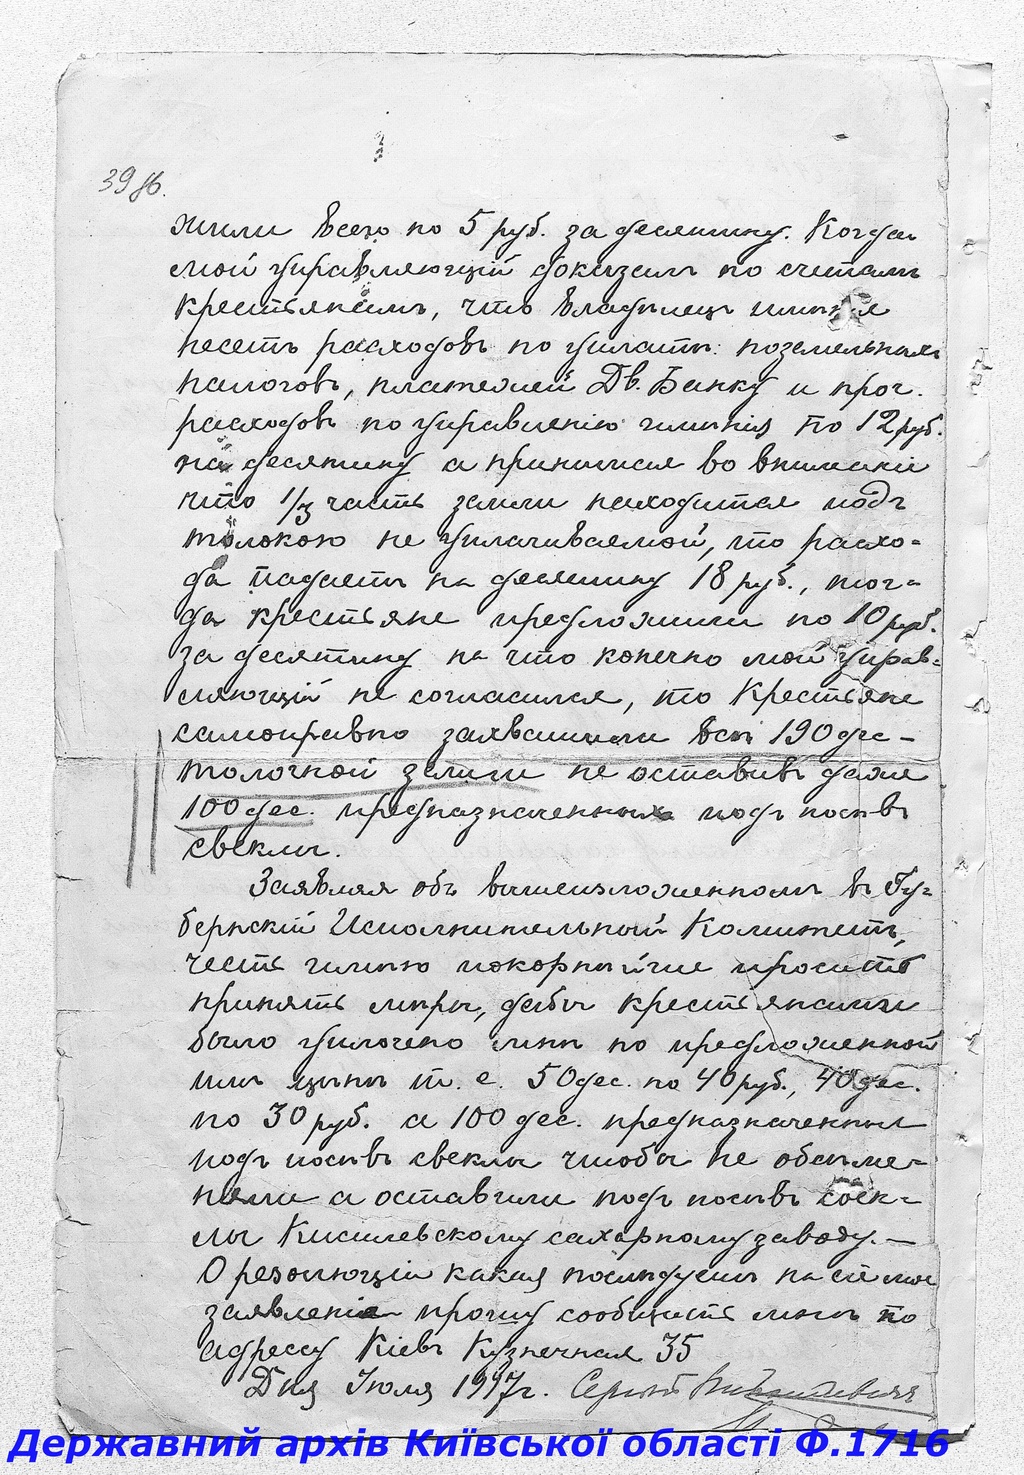 39 об.
жили всего по 5 руб. за десятину. Когда
мой управляющій доказалъ по счетамъ
крестьянамъ, что владѣлецъ имѣнія
несетъ расходовъ по уплатѣ поземельныхъ
налоговъ, платежей Дв. Банку и проч.
расходовъ по управленію имѣнія по 12 руб.
на десятину а принимая во вниманіе
что 1/3 часть земли находится подъ
толокою не уплачиваемой, то расхо-
да падаетъ на десятину 18 руб., тог-
да крестьяне предложили по 10 руб.
за десятину на что конечно мой управ-
ляющій не согласился, то крестьяне
самоправно захватили всѣ 190 дес-
толочной земли не оставивъ даже
100 дес. предназначенныхъ подъ посѣвъ
свеклы.
Заявляя объ вышеизложенномъ въ Гу-
бернскій Исполнительный Комитетъ,
честь имѣю покорнѣйше просить
принять мѣры, дабы крестьянами
было уплочено мнѣ по предложенной
имъ цѣнѣ т. е. 50 дес. по 40 руб., 40 дес.
по 30 руб. а 100 дес. предназначенныя
подъ посѣвъ свеклы чтобы не обсѣме-
няли а оставили подъ посѣвъ свек-
лы Кисилевскому сахарному заводу. —
О резолюціи какая послѣдуетъ на сіе мое
заявленіе прошу сообщить мнѣ по
адрессу Кіевъ Кузнечная 35
Дня Іюля 1917 г. Сергѣй
Державний архів Київської області Ф.1716